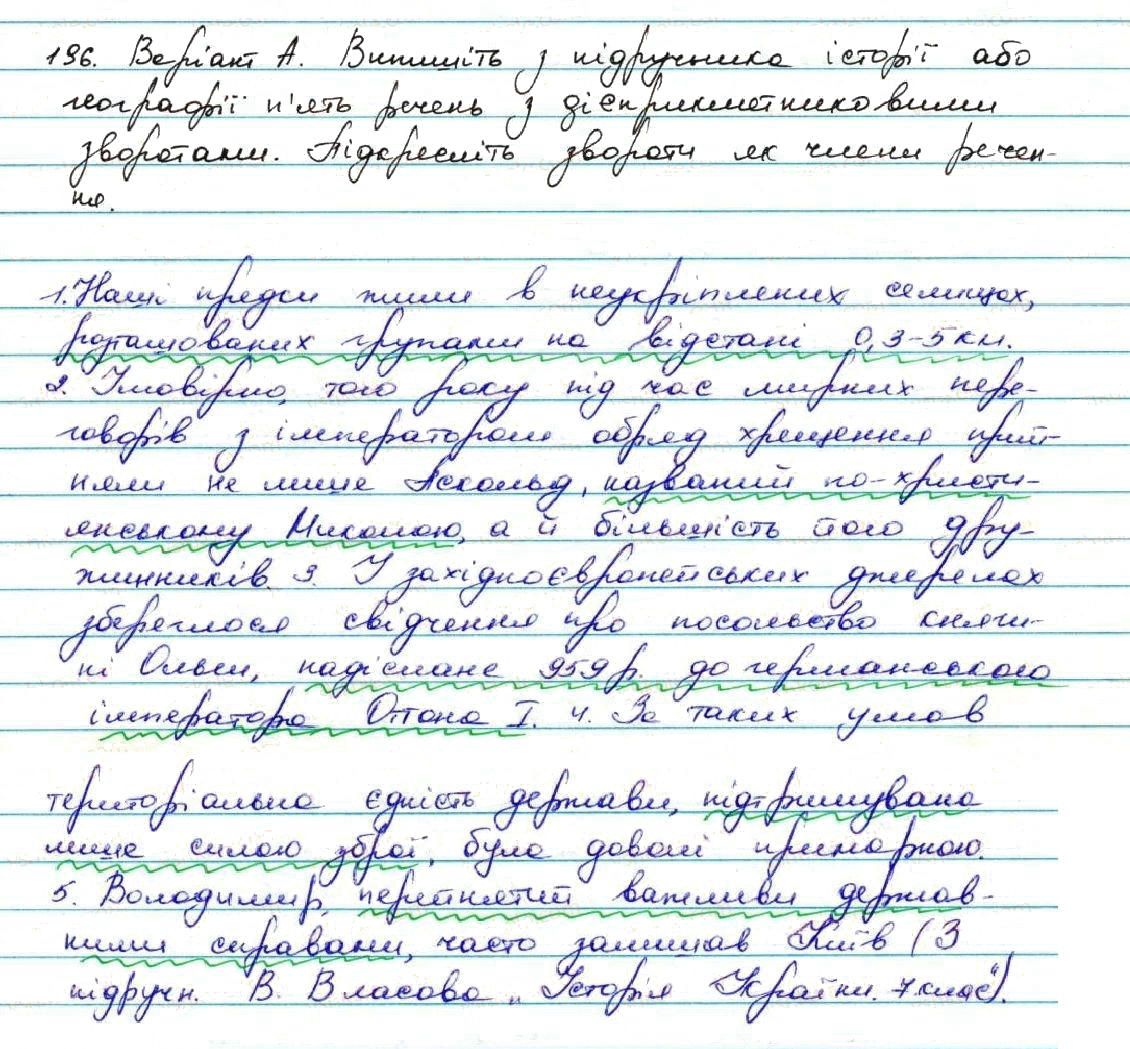 196. Варіант А. Випишіть з підручника історії або
географії п'ять речень з дієприкметниковими
зворотами. Підкресліть звороти як члени речен-
ня.
1. Наші предки жили в неукріплених селищах,
розташованих групами на відстані 0,3-5 км.
2. Імовірно, того року під час мирних пере-
говорів з імператором обряд хрещення прий-
няли не лише Аскольд, названий по-христи-
янському Миколою, а й більшість його дру-
жинників. 3. У західноєвропейських джерелах
збереглося свідчення про посольство княги-
ні Ольги, надіслане 959 р. до германського
імператора Оттона I. 4. За таких умов
територіальна єдність держави, підтримувана
лише силою зброї, була доволі примарною.
5. Володимир, перейнятий важливи держав-
ними справами, часто залишав Київ (З
підручн. В. Власова „Історія України. 7 клас").